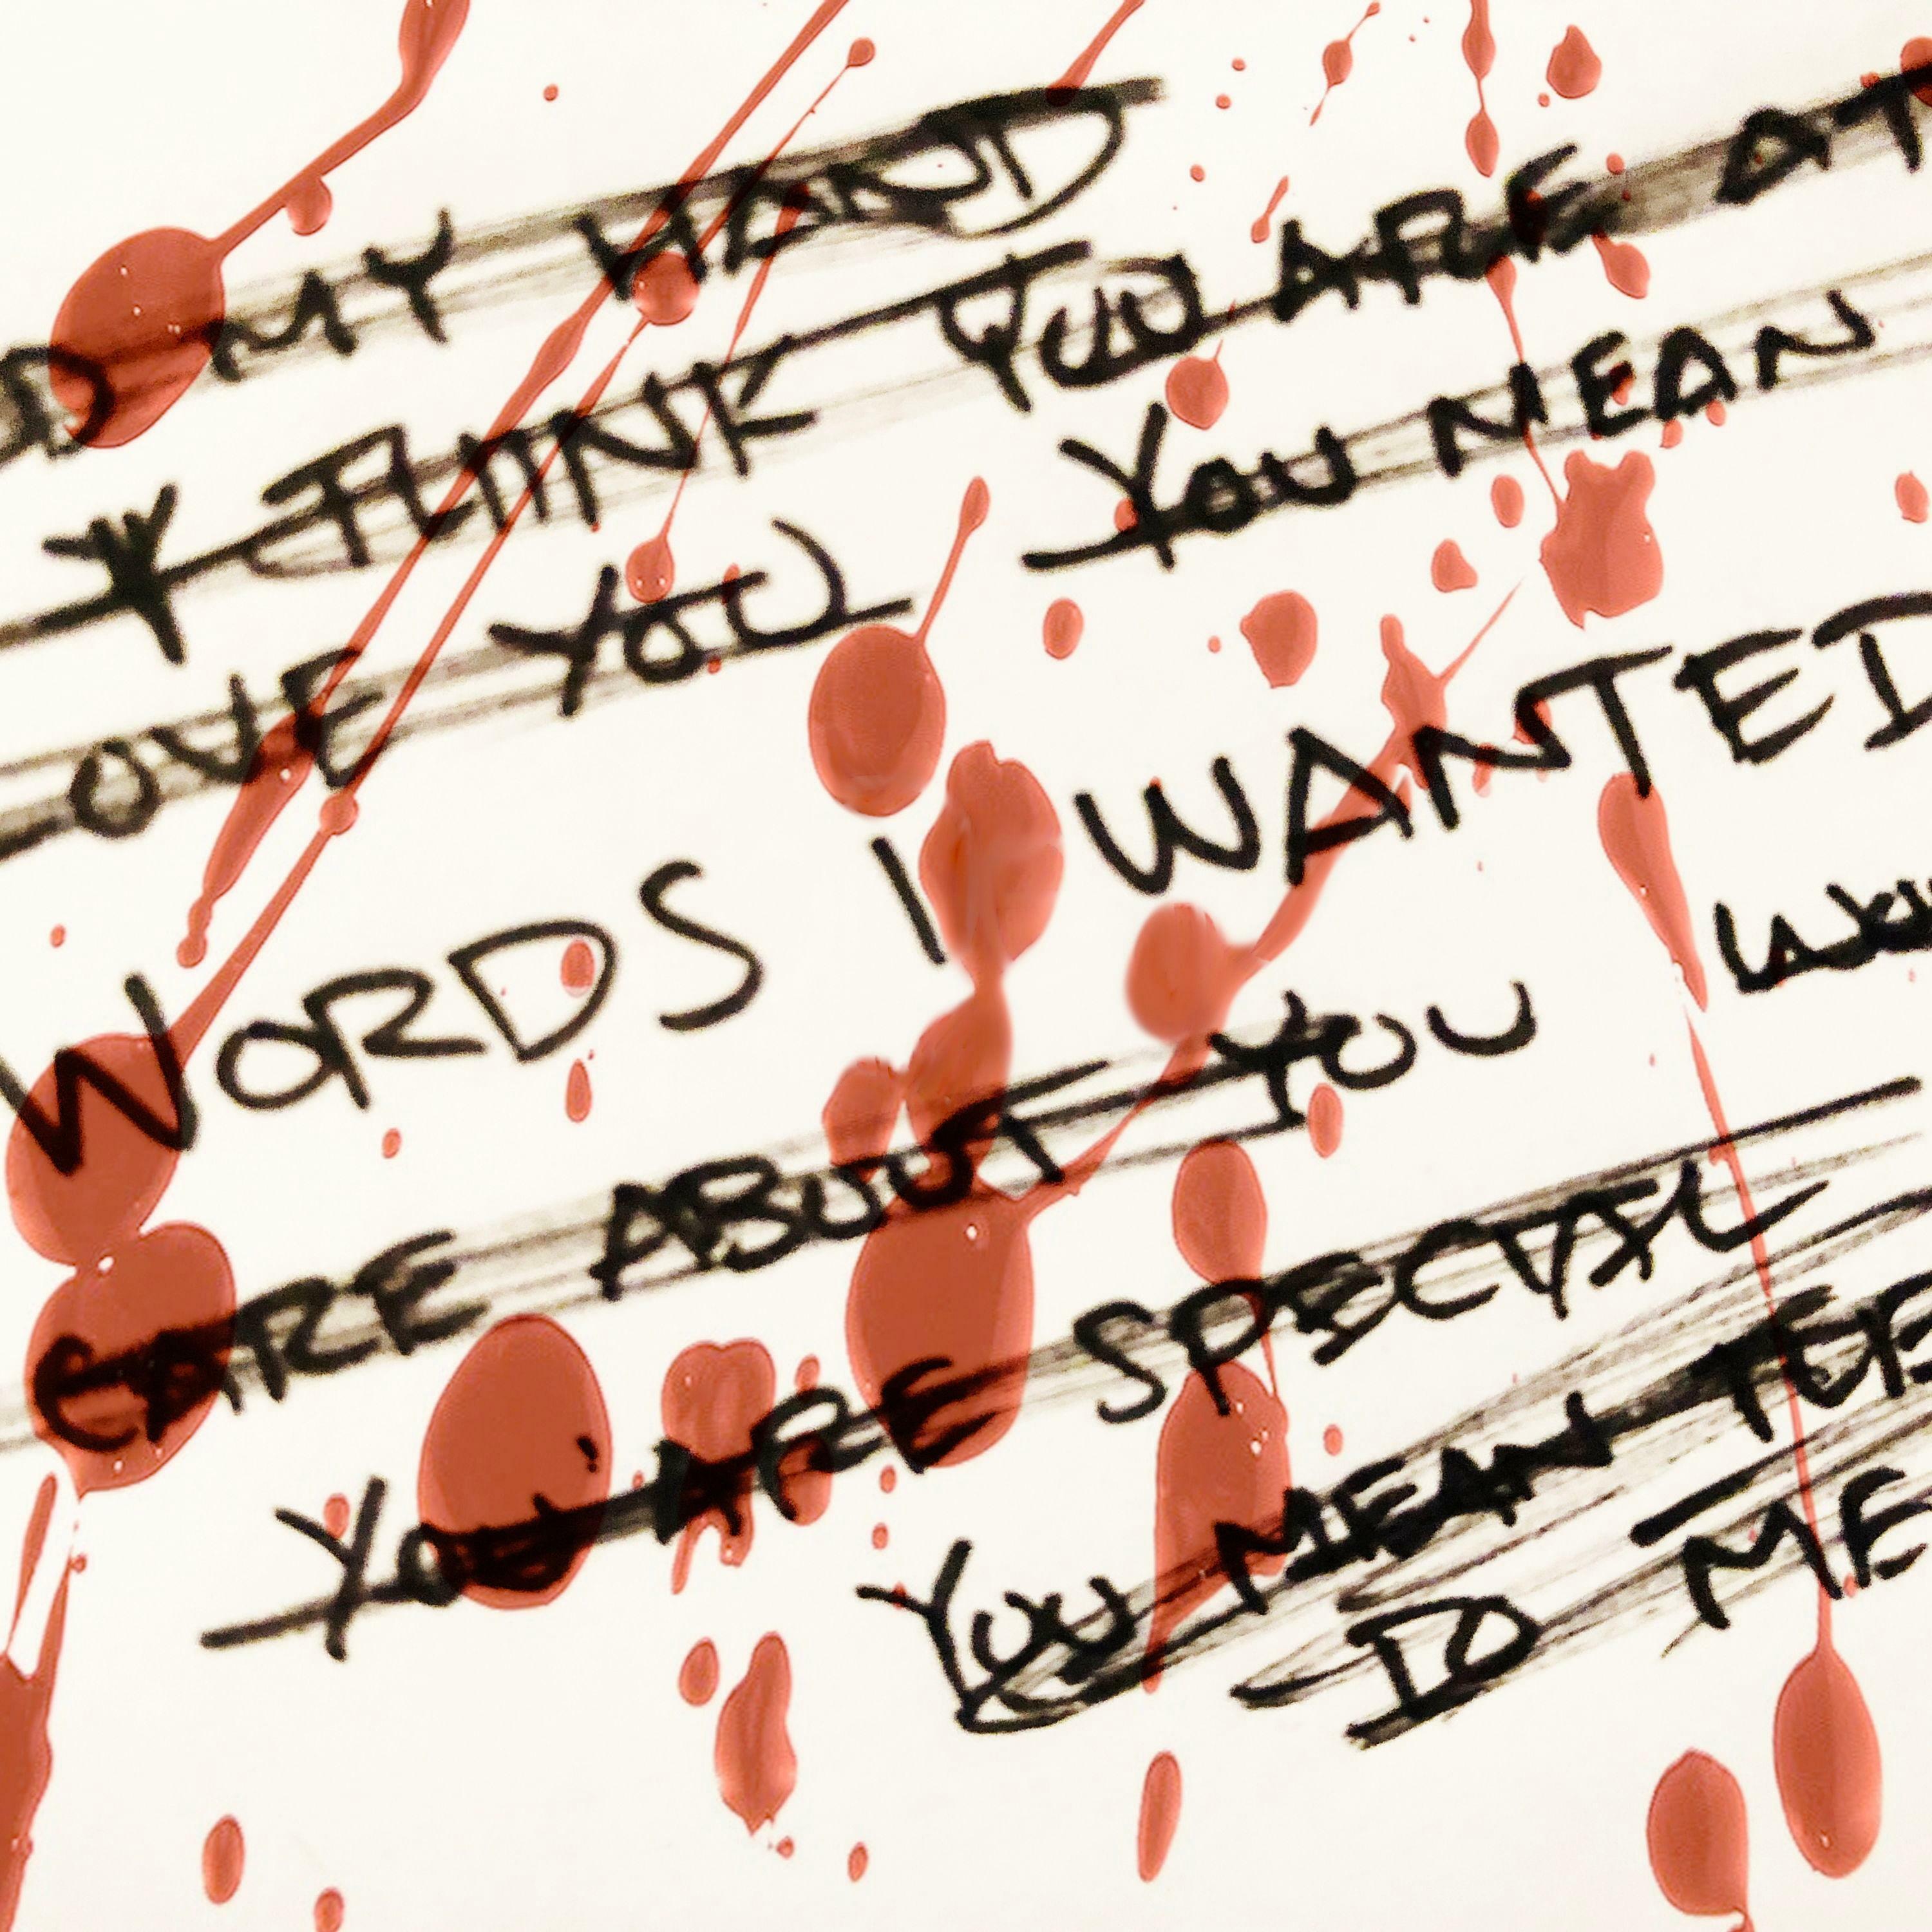 MY HAND
I THINK YOU ARE AT
OVE YOU YOU MEAN
WORDS I WANTED
CARE ABOUT YOU
YOU ARE SPECIAL
YOU MEAN
TO ME